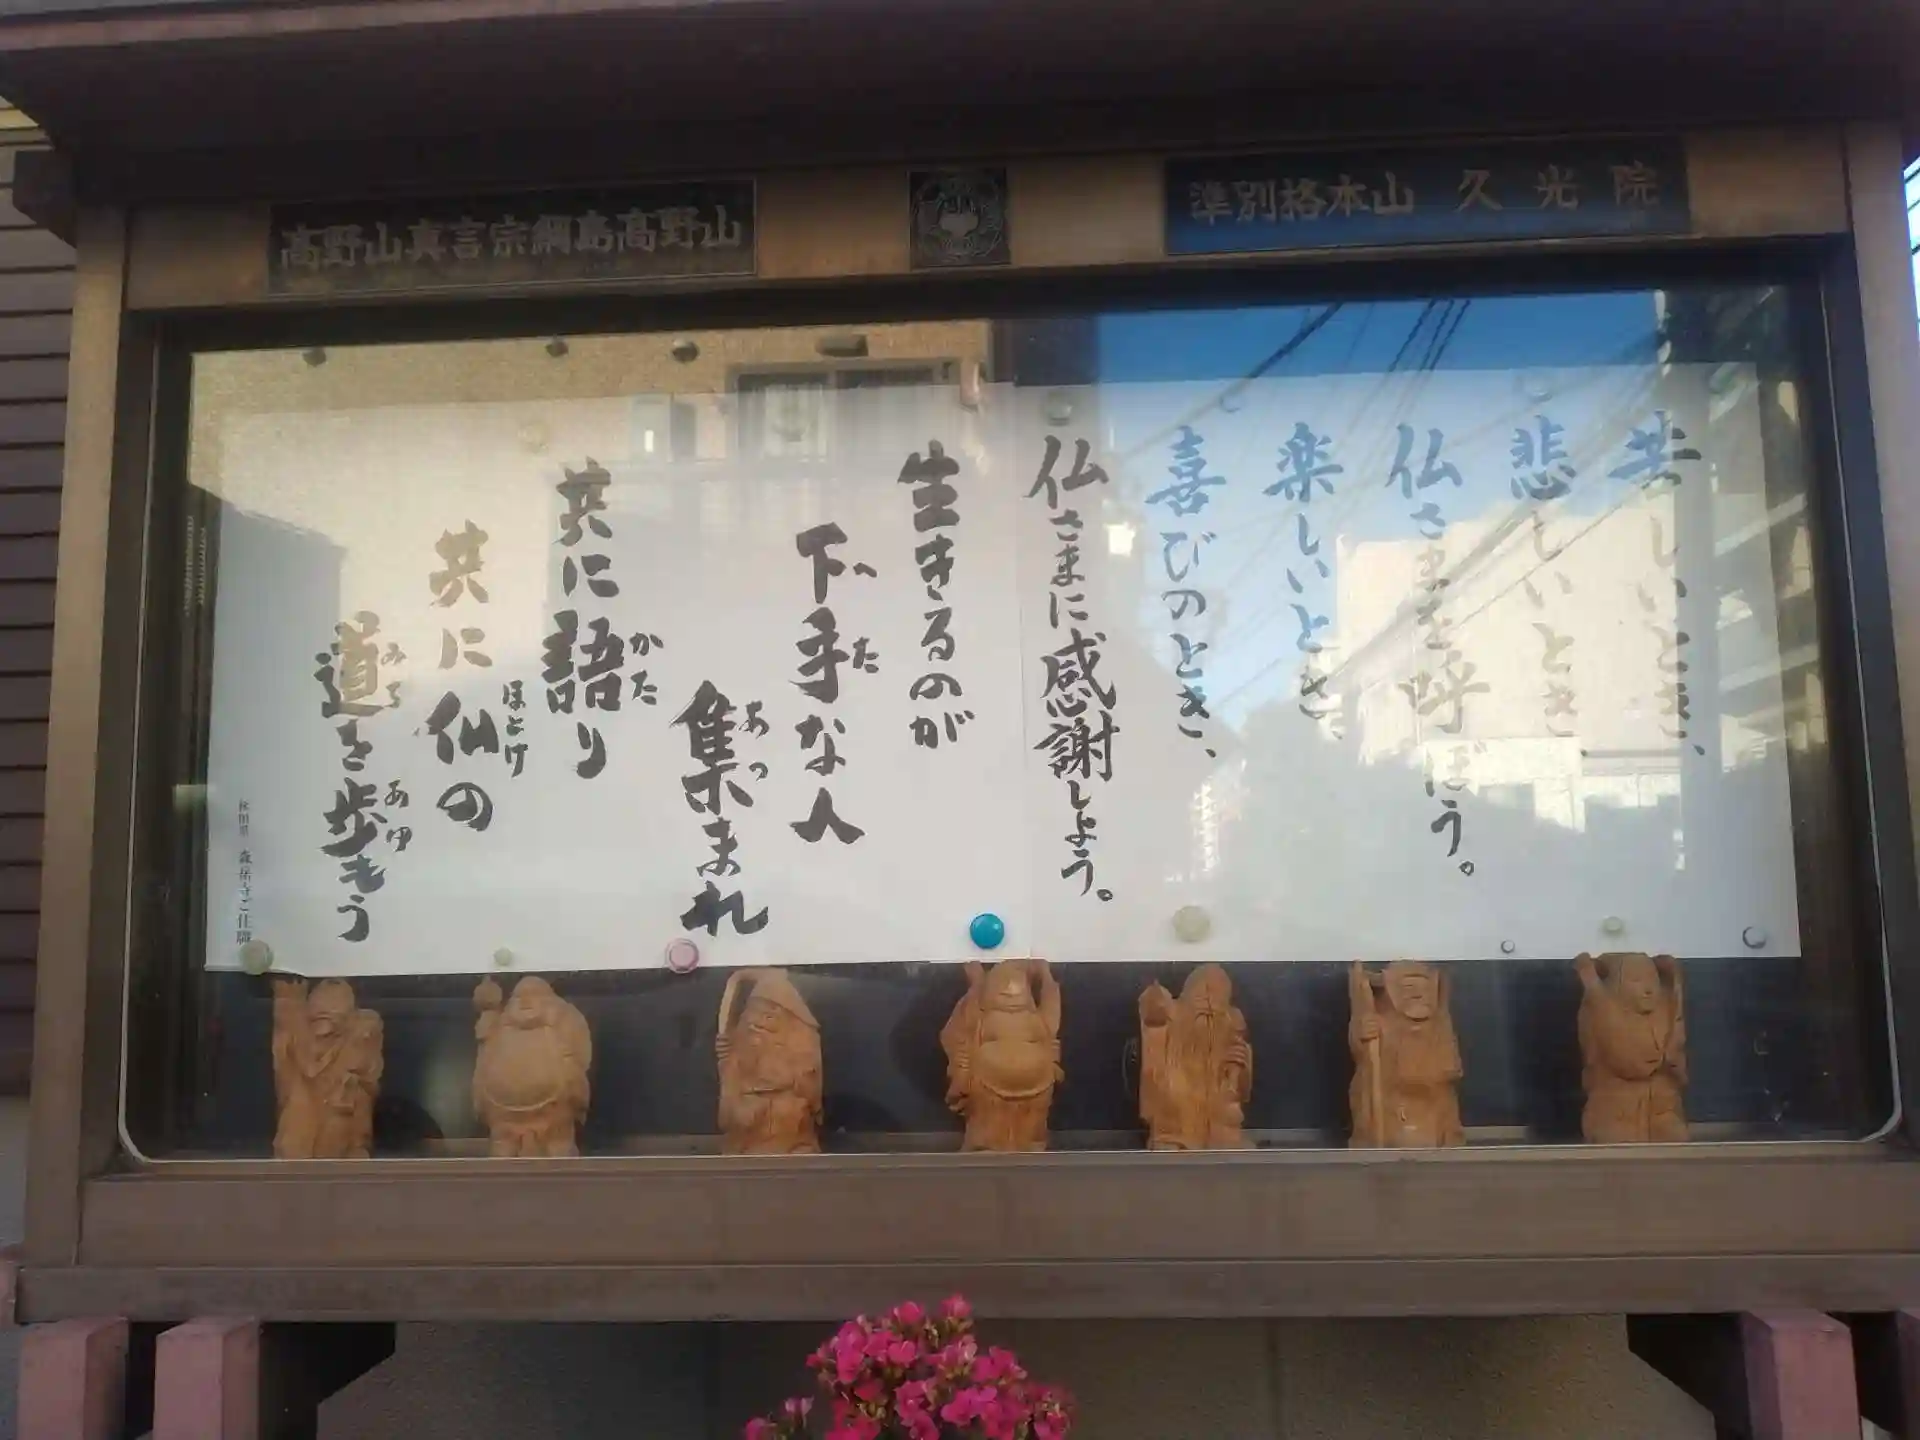 高野山真言宗綱島高野山
準別格本山 久光院
苦しいとき、
悲しいとき、
仏さまを呼ぼう。
楽しいとき、
喜びのとき、
仏さまに感謝しよう。
生きるのが
下手な人
へた
集まれ
あつ
共に語り
かた
共に仏の
ほとけ
道を歩もう
みち
あゆ
秋田県 森岳寺ご住職